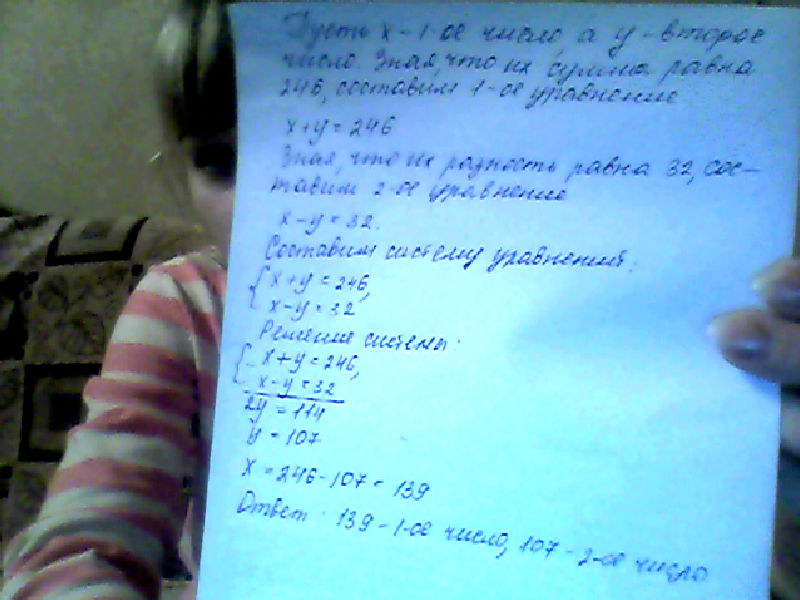 Пусть x - 1-ое число, а y - второе
число. Зная, что их сумма равна
246, составим 1-ое уравнение
x+y=246
Зная, что их разность равна 32, сос-
тавим 2-ое уравнение
x-y=32.
Составим систему уравнений:
{x+y=246,
x-y=32
Решение системы:
{-x+y=246,
x-y=32
2y=114
y=107
x=246-107=139
Ответ: 139-1-ое число, 107-2-ое число